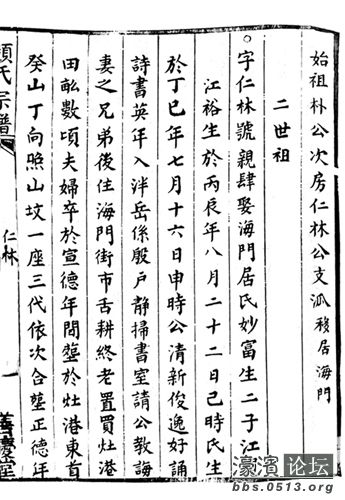 始祖朴公次房仁林公支派移居海門
二世祖
字仁林號親肆娶海門居氏妙富生二子江
江裕生於丙辰年八月二十二日己時氏生
於丁巳年七月十六日申時公清新俊逸好誦
詩書英年入泮岳係殷户静掃書室請公教誨
妻之兄弟後住海門街市舌耕終老置買灶港
田畆數頃夫婦卒於宣德年間塟於灶港東首
癸山丁向照山墳一座三代依次合塟正德年
氏宗譜
仁林
善慶堂
濠滨 论坛
bbs.0513.org